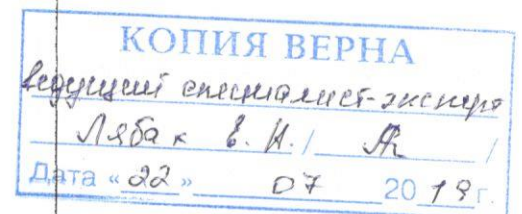 КОПИЯ ВЕРНА
ведущий специалист-эксперт
Лябах Е. Н. / /
Дата «22» 07 2019 г.